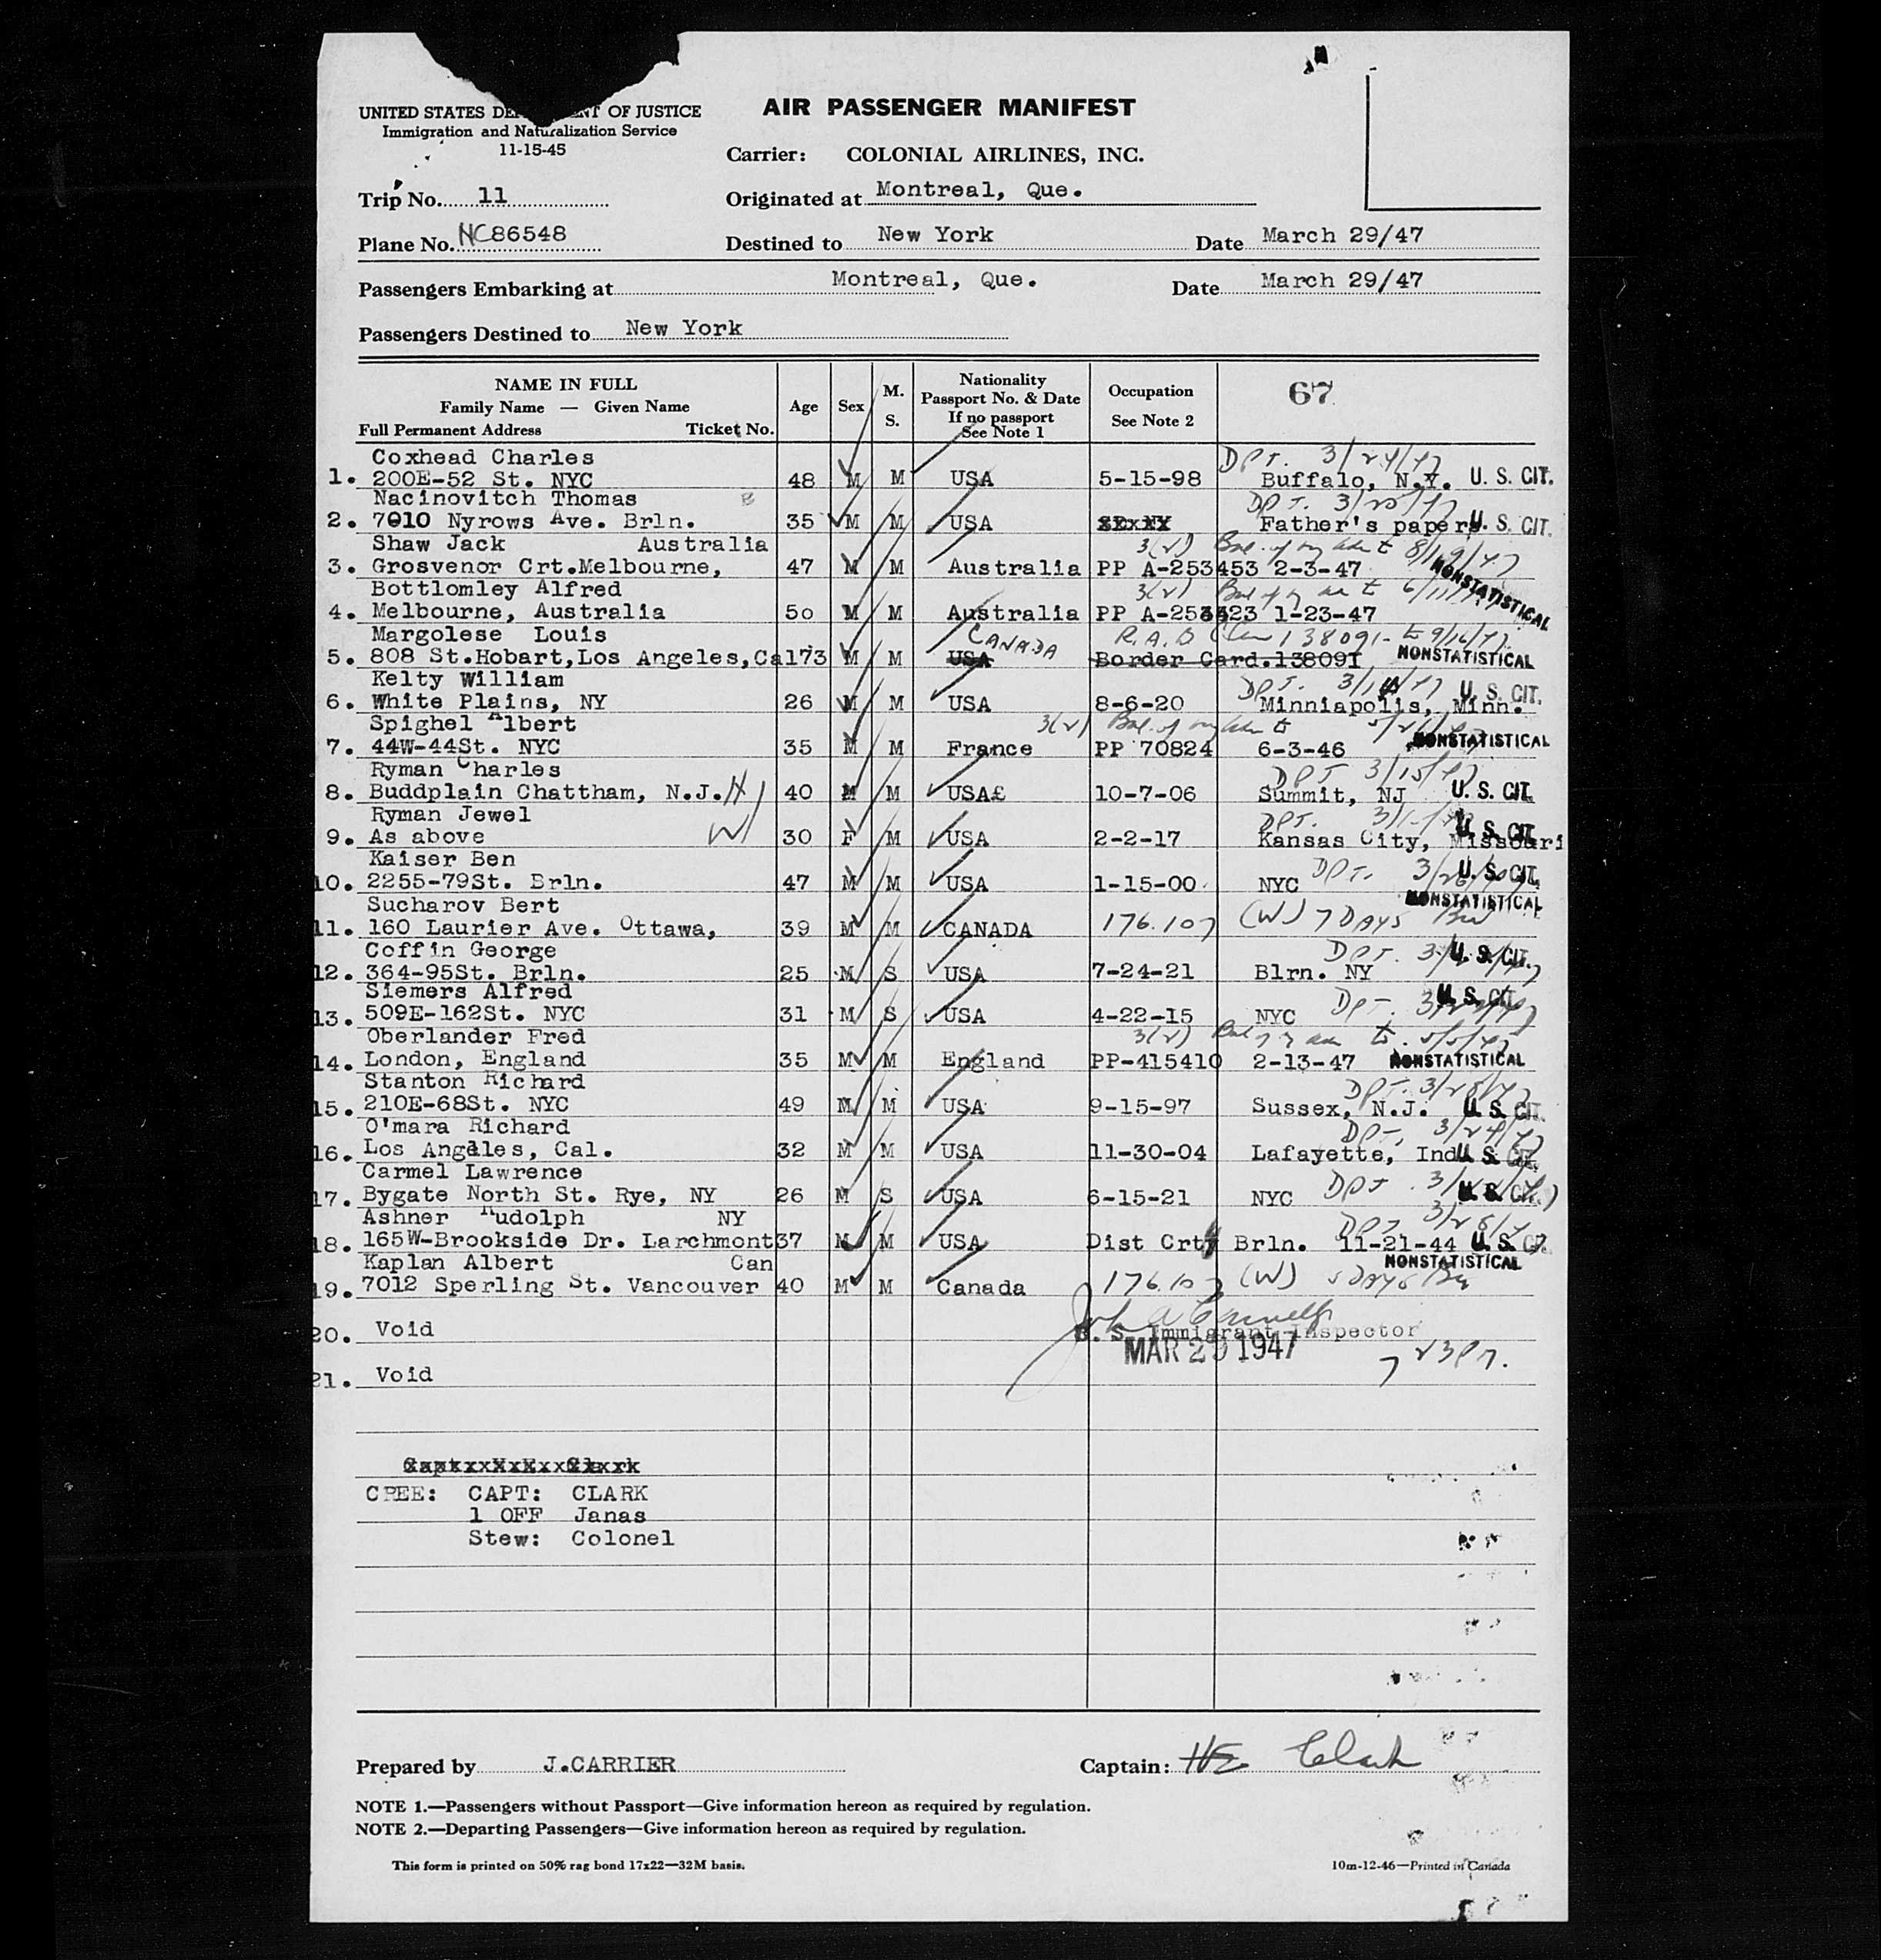 UNITED STATES DE ENT OF JUSTICE
Immigration and Naturalization Service
11-15-45
AIR PASSENGER MANIFEST
Carrier: COLONIAL AIRLINES, INC.
Trip No. 11
Originated at Montreal, Que.
Plane No. NC86548
Destined to New York
Date March 29/47
Passengers Embarking at Montreal, Que.
Date March 29/47
Passengers Destined to New York
NAME IN FULL
Family Name — Given Name
Full Permanent Address Ticket No.
Age
Sex
M.
S.
Nationality
Passport No. & Date
If no passport
See Note 1
Occupation
See Note 2
67
Coxhead Charles DPT. 3/24/47
1. 200E-52 St. NYC 48 M M USA 5-15-98 Buffalo, N.Y. U. S. CIT.
Nacinovitch Thomas B DPT. 3/20/47
2. 7010 Nyrows Ave. Brln. 35 M M USA Father's papers U. S. CIT.
Shaw Jack Australia 3(2) 8/19/47
3. Grosvenor Crt.Melbourne, 47 M M Australia PP A-253453 2-3-47 NONSTATISTICAL
Bottlomley Alfred 3(2)
4. Melbourne, Australia 50 M M Australia PP 1-23-47
Margolese Louis CANADA R.A.B 138091- to 9/16/47
5. 808 St.Hobart,Los Angeles,Cal 73 M M USA Border Card.138091 NONSTATISTICAL
Kelty William DPT.
6. White Plains, NY 26 M M USA 8-6-20 Minniapolis, Minn. U. S. CIT.
Spighel Albert 3(2)
7. 44W-44St. NYC 35 M M France PP 70824 6-3-46 NONSTATISTICAL
Ryman Charles DPT 3/15/47
8. Buddplain Chattham, N.J. H 40 M M USA£ 10-7-06 Summit, NJ U. S. CIT.
Ryman Jewel DPT.
9. As above W 30 F M USA 2-2-17 Kansas City, Missouri U. S. CIT.
Kaiser Ben
10. 2255-79St. Brln. 47 M M USA 1-15-00 NYC DPT. U. S. CIT.
Sucharov Bert NONSTATISTICAL
11. 160 Laurier Ave. Ottawa, 39 M M CANADA 176.107 (W) 7 DAYS
Coffin George DPT. U. S. CIT.
12. 364-95St. Brln. 25 M S USA 7-24-21 Blrn. NY
Siemers Alfred U. S. CIT.
13. 509E-162St. NYC 31 M S USA 4-22-15 NYC DPT.
Oberlander Fred 3(2) to 5/5/47
14. London, England 35 M M England PP-415410 2-13-47 NONSTATISTICAL
Stanton Richard DPT. 3/28/47
15. 210E-68St. NYC 49 M M USA 9-15-97 Sussex, N.J. U. S. CIT.
O'mara Richard DPT. 3/24/47
16. Los Angeles, Cal. 32 M M USA 11-30-04 Lafayette, Ind U. S. CIT.
Carmel Lawrence
17. Bygate North St. Rye, NY 26 M S USA 6-15-21 NYC DPT. U. S. CIT.
Ashner Rudolph NY DPT. 3/28/47
18. 165W-Brookside Dr. Larchmont 37 M M USA Dist Crty Brln. 11-21-44 U. S. CIT.
Kaplan Albert Can NONSTATISTICAL
19. 7012 Sperling St. Vancouver 40 M M Canada 176.107 (W) 5 DAYS
20. Void U. S. Immigrant Inspector
MAR 29 1947
21. Void 7 23 Pm.
Captxx
CREE: CAPT: CLARK
1 OFF Janas
Stew: Colonel
Prepared by J.CARRIER
Captain: HE Clark
NOTE 1.—Passengers without Passport—Give information hereon as required by regulation.
NOTE 2.—Departing Passengers—Give information hereon as required by regulation.
This form is printed on 50% rag bond 17x22—32M basis.
10m-12-46—Printed in Canada